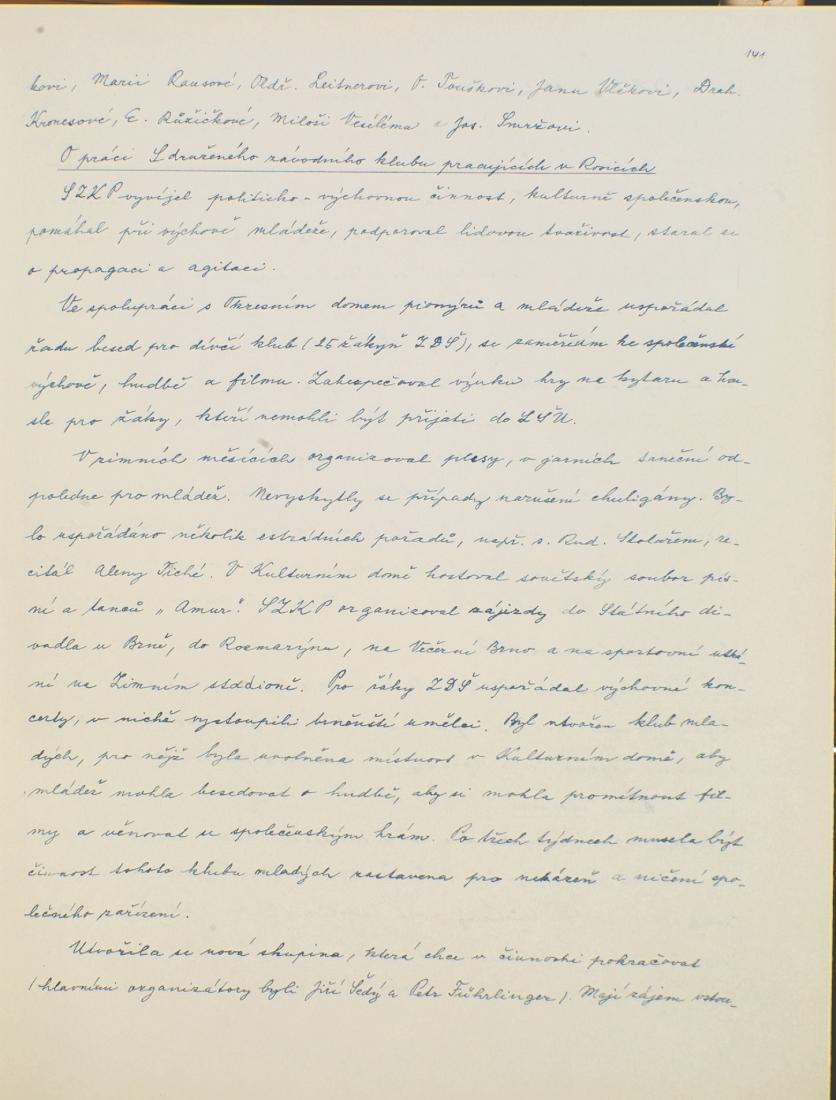 141
kovi, Marii Rausové, Oldř. Leitnerovi, O. Touškovi, Janu Vlčkovi, Drah.
Kronesové, E. Růžičkové, Miloši Veselému a Jos. Smržovi.
O práci Sdruženého závodního klubu pracujících v Rosicích
SZKP vyvíjel politicko-výchovnou činnost, kulturně společenskou,
pomáhal při výchově mládeže, podporoval lidovou tvořivost, staral se
o propagaci a agitaci.
Ve spolupráci s Okresním domem pionýrů a mládeže uspořádal
řadu besed pro dívčí klub (25 žákyň ZDŠ), se zaměřením ke společenské
výchově, hudbě a filmu. Zabezpečoval výuku hry na kytaru a hou-
sle pro žáky, kteří nemohli být přijati do LŠU.
V zimních měsících organizoval plesy, v jarních taneční od-
poledne pro mládež. Nevyskytly se případy narušení chuligány. By-
lo uspořádáno několik estrádních pořadů, např. s. Rud. Stolařem, re-
citál Aleny Tiché. V Kulturním domě hostoval sovětský soubor pís-
ní a tanců „Amur". SZKP organizoval zájezdy do Státního di-
vadla v Brně, do Rozmarýnu, na Večerní Brno a na sportovní utká-
ní na Zimním stadioně. Pro žáky ZDŠ uspořádal výchovné kon-
certy, v nichž vystoupili brněnští umělci. Byl utvořen klub mla-
dých, pro nějž byla uvolněna místnost v Kulturním domě, aby
mládež mohla besedovat o hudbě, aby si mohla promítnout fil-
my a věnovat se společenským hrám. Po třech týdnech musela být
činnost tohoto klubu mladých zastavena pro nekázeň a ničení spo-
lečného zařízení.
Utvořila se nová skupina, která chce v činnosti pokračovat
(hlavními organizátory byli Jiří Šedý a Petr Führlinger). Mají zájem vstou-